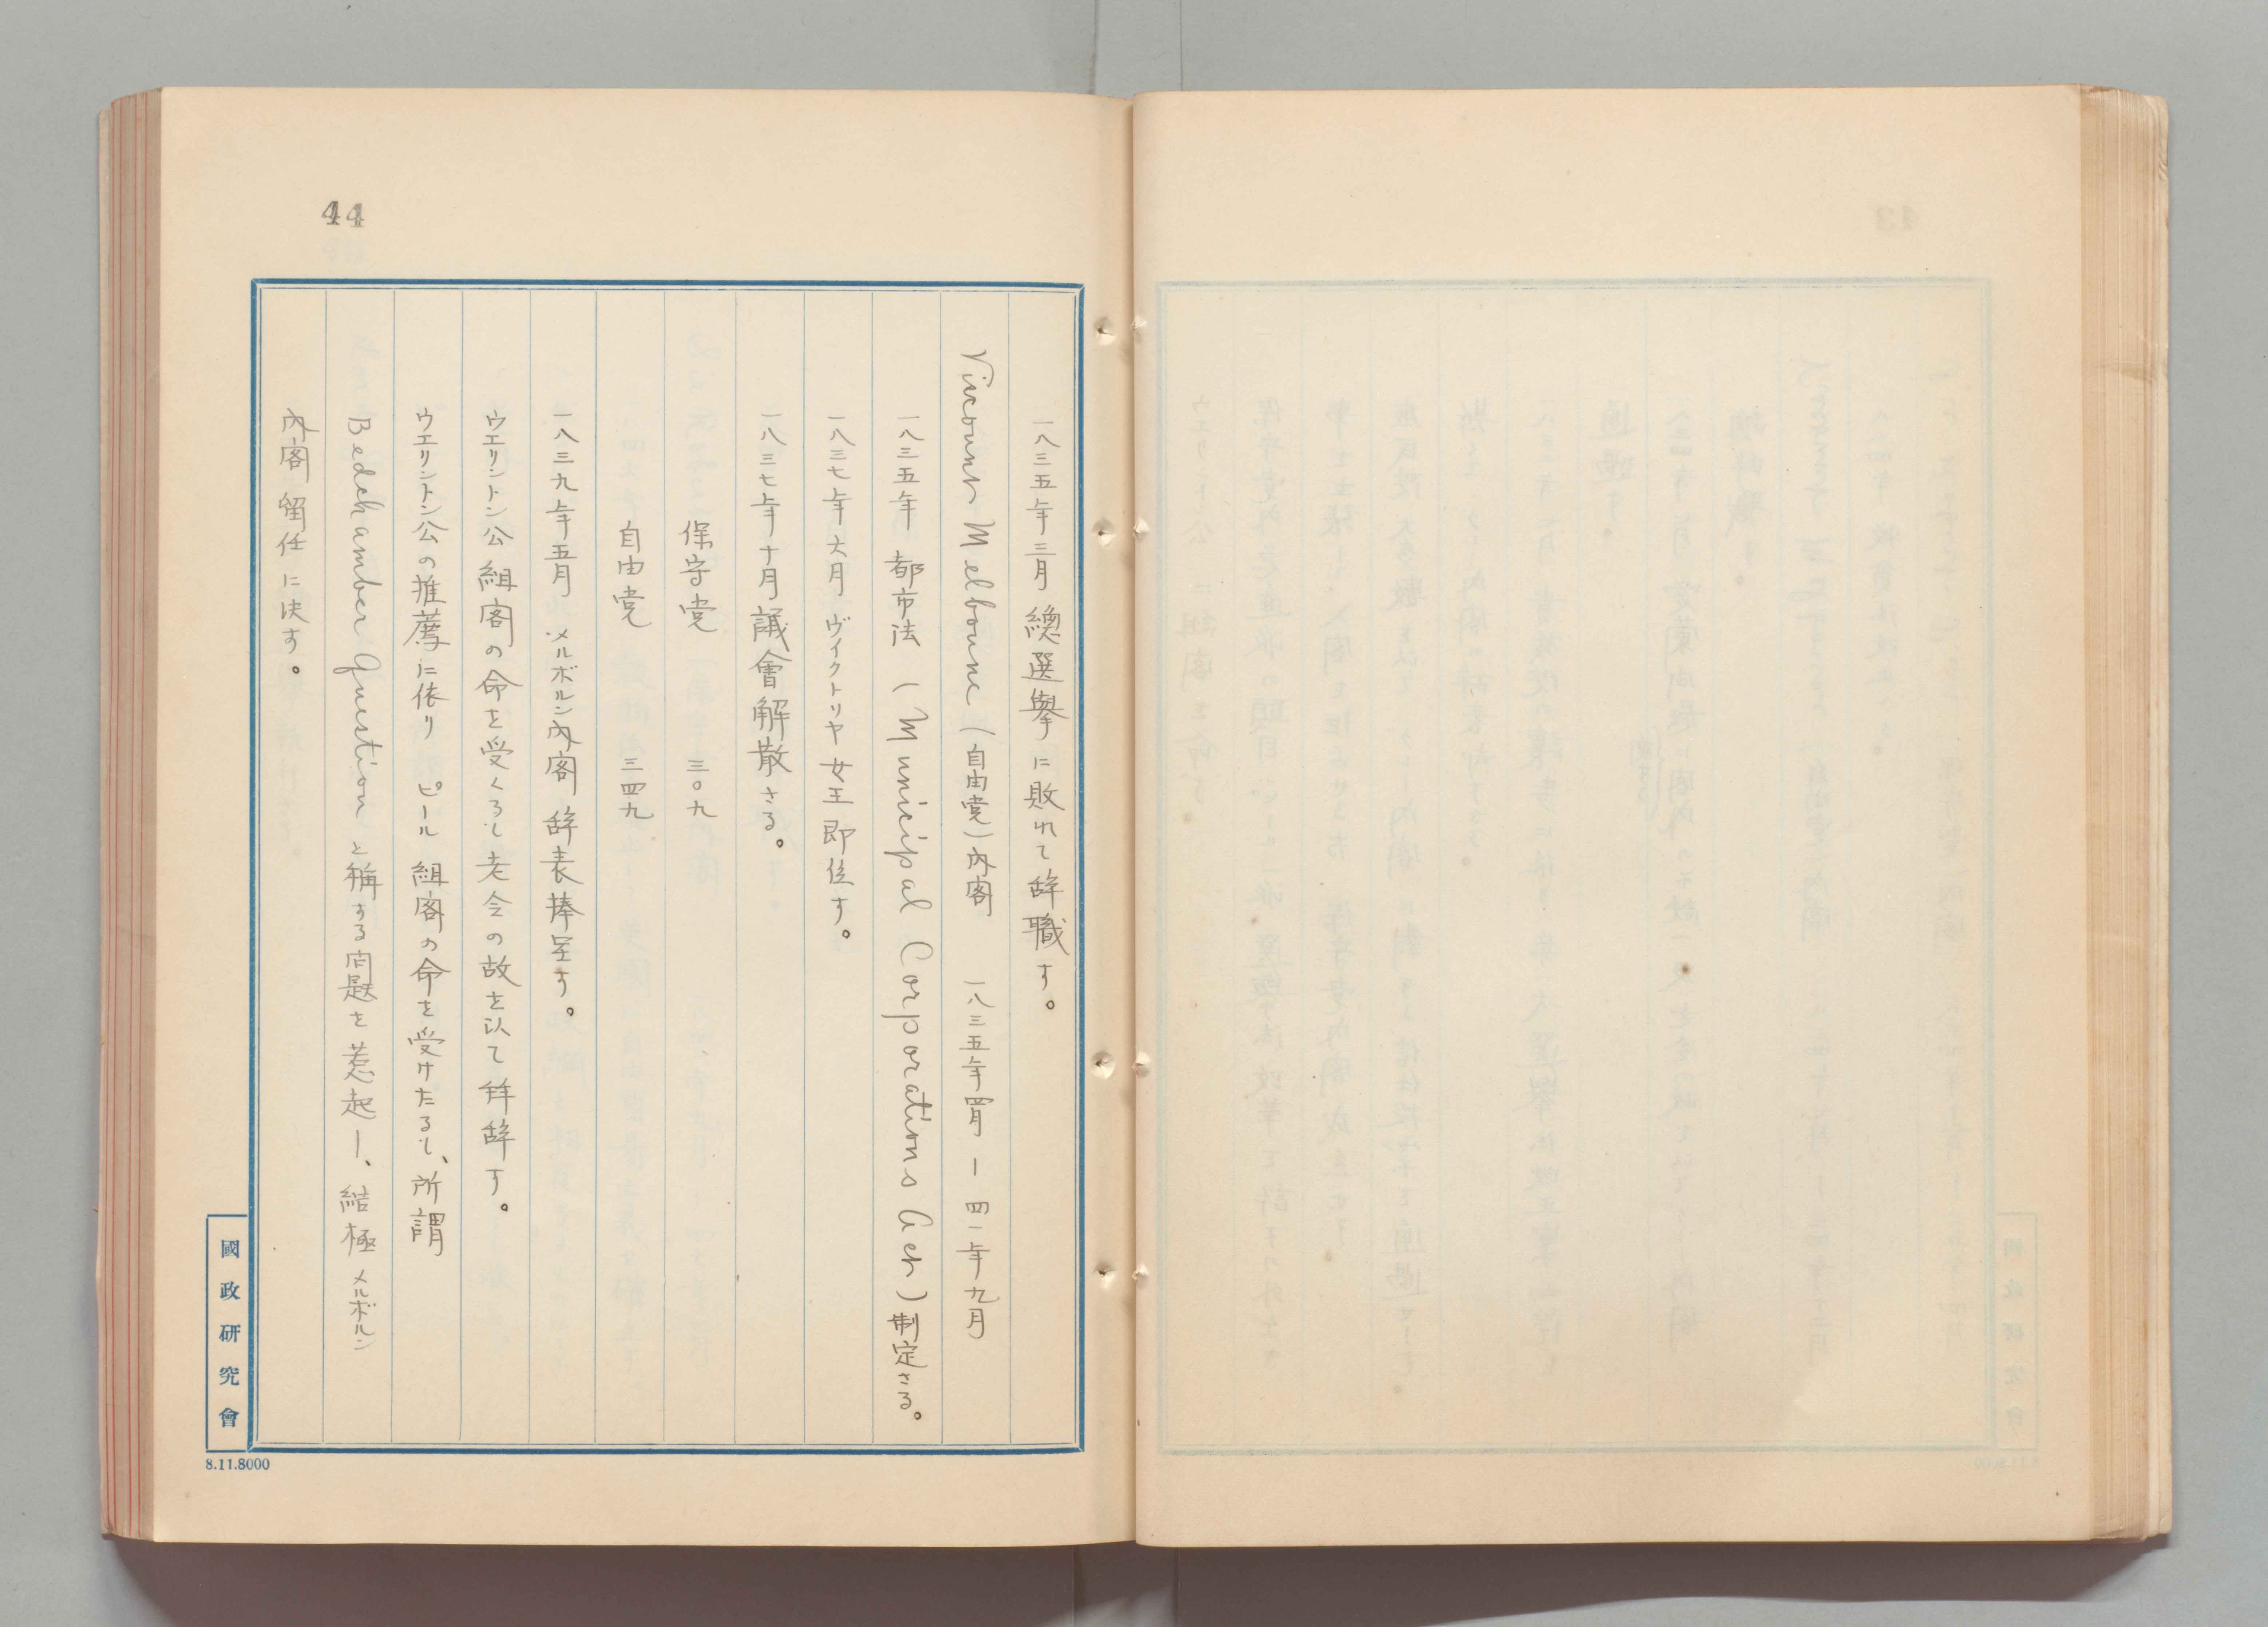 44
一八三五年三月 總選擧に敗れて辞職す。
Vicount Melbourne（自由党）内閣 一八三五年四月ー四一年九月
一八三五年 都市法（Municipal Corporations Act）制定さる。
一八三七年六月 ヴィクトリヤ女王即位す。
一八三七年十月 議會解散さる。
保守党 三〇九
自由党 三四九
一八三九年五月 メルボルン内閣 辞表捧呈す。
ウエリントン公 組閣の命を受くるも老令の故を以て拝辞す。
ウエリントン公の推薦に依り ピール 組閣の命を受けたるも、所謂
Bedchamber Question と稱する問題を惹起し、結極 メルボルン
内閣留任に決す。
國政研究會
8.11.8000